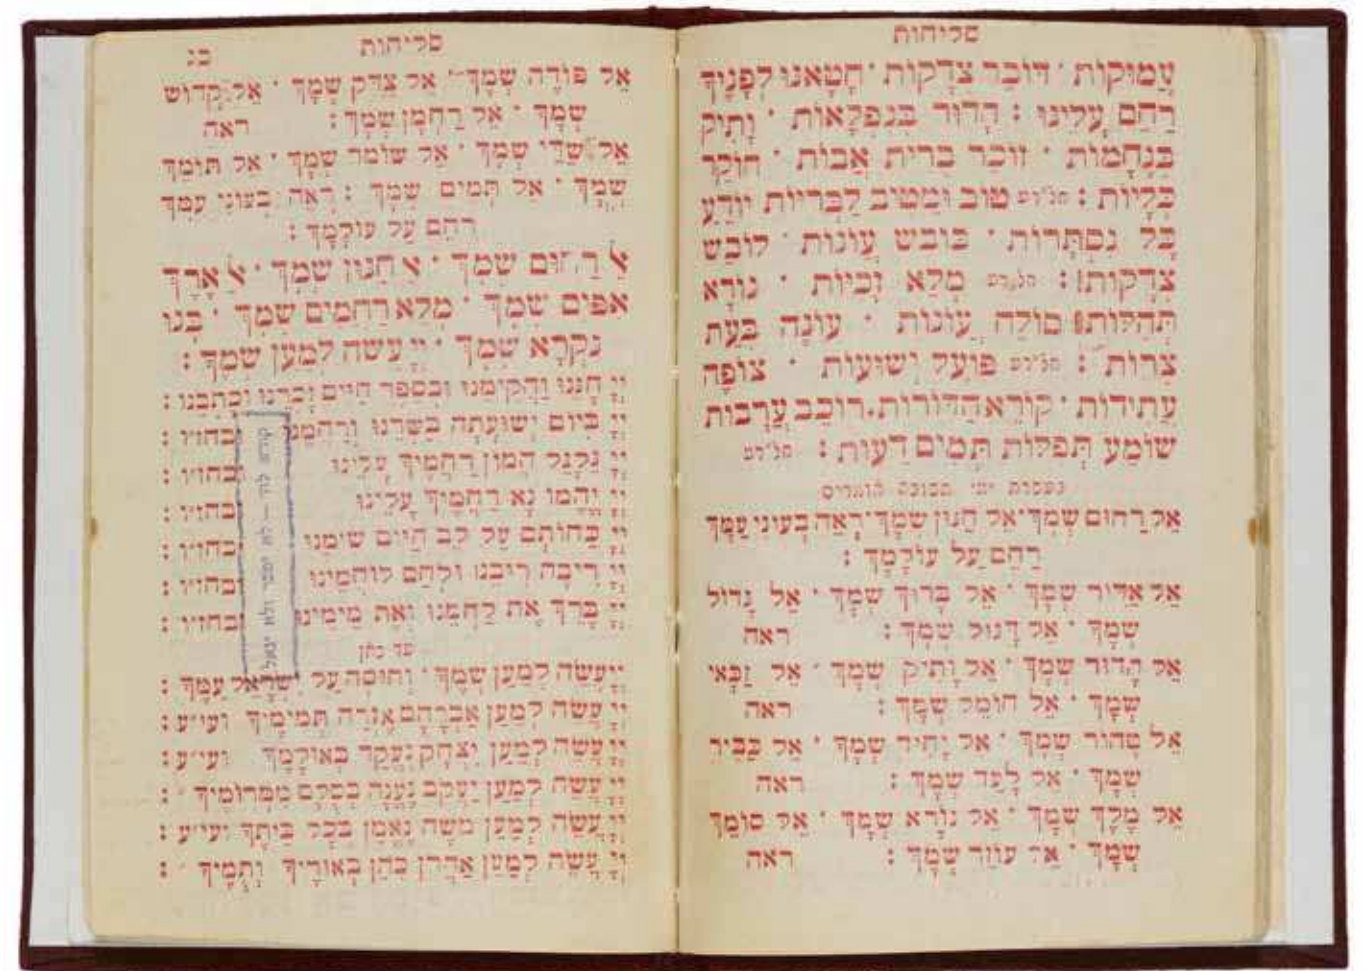 סליחות
עֲמוּקוֹת · דּוֹבֵר צְדָקוֹת · חָטָאנוּ לְפָנֶיךָ
רַחֵם עָלֵינוּ : הָדוּר בְּנִפְלָאוֹת · וָתִיק
בְּנֶחָמוֹת · זוֹכֵר בְּרִית אָבוֹת · חוֹקֵר
כְּלָיוֹת : חל״רע טוֹב וּמֵטִיב לַבְּרִיּוֹת יוֹדֵעַ
כָּל נִסְתָּרוֹת · כּוֹבֵשׁ עֲוֹנוֹת · לוֹבֵשׁ
צְדָקוֹת : חל״רע מָלֵא זְכֻיּוֹת · נוֹרָא
תְהִלּוֹת סוֹלֵחַ עֲוֹנוֹת · עוֹנֶה בְּעֵת
צָרוֹת : חל״רע פּוֹעֵל יְשׁוּעוֹת · צוֹפֶה
עֲתִידוֹת · קוֹרֵא הַדּוֹרוֹת. רוֹכֵב עֲרָבוֹת
שׁוֹמֵעַ תְּפִלּוֹת תְּמִים דֵּעוֹת : חל״רע
אֵל רַחוּם שְׁמָךְ · אֵל חַנּוּן שְׁמָךְ · רְאֵה בְעֹינִי עַמָּךְ
רַחֵם עַל עוֹלָמָךְ :
אֵל אַדִּיר שְׁמָךְ · אֵל בָּרוּךְ שְׁמָךְ · אֵל גָּדוֹל
שְׁמָךְ · אֵל דָּגוּל שְׁמָךְ : ראה
אֵל הָדוּר שְׁמָךְ · אֵל וָתִיק שְׁמָךְ · אֵל זַכָּאי
שְׁמָךְ · אֵל חוֹמֵל שְׁמָךְ : ראה
אֵל טָהוֹר שְׁמָךְ · אֵל יָחִיד שְׁמָךְ · אֵל כַּבִּיר
שְׁמָךְ · אֵל לָעַד שְׁמָךְ : ראה
אֵל מֶלֶךְ שְׁמָךְ · אֵל נוֹרָא שְׁמָךְ · אֵל סוֹמֵךְ
שְׁמָךְ · אֵל עוֹזֵר שְׁמָךְ : ראה
סליחות כג
אֵל פּוֹדֶה שְׁמָךְ · אֵל צַדִּק שְׁמָךְ · אֵל קָדוֹשׁ
שְׁמָךְ · אֵל רַחְמָן שְׁמָךְ : ראה
אֵל שַׁדַּי שְׁמָךְ · אֵל שׁוֹמֵר שְׁמָךְ · אֵל תּוֹמֵךְ
שְׁמָךְ · אֵל תָּמִים שְׁמָךְ : רְאֵה בְעוֹנִי עַמָּךְ
רַחֵם עַל עוֹלָמָךְ :
אֵ רַחוּם שְׁמָךְ · אֵ חַנּוּן שְׁמָךְ · אֵ אֶרֶךְ
אַפַּיִם שְׁמָךְ · מָלֵא רַחֲמִים שְׁמָךְ · בָּנוּ
נִקְרָא שְׁמָךְ · יְיָ עֲשֵׂה לְמַעַן שְׁמָךְ :
יְיָ חָנֵּנוּ וַהֲקִימֵנוּ וּבְסֵפֶר חַיִּים זָכְרֵנוּ וְכָתְבֵנוּ :
יְיָ בְּיוֹם יְשׁוּעָתָה בַּשְּׂרֵנוּ וְרַחֲמֵנוּ ובחז״ו :
יְיָ גַּלְגֵּל הֲמוֹן רַחֲמֶיךָ עָלֵינוּ ובחז״ו :
יְיָ וְיֶהֱמוּ נָא רַחֲמֶיךָ עָלֵינוּ ובחז״ו :
יְיָ כַּחוֹתָם עַל לֵב חַיִּים שִׂימֵנוּ ובחז״ו :
יְיָ רִיבָה רִיבֵנוּ וּלְחַם לוֹחֲמֵינוּ ובחז״ו :
יְיָ בָּרֵךְ אֶת לַחְמֵנוּ וְאֶת מֵימֵינוּ ובחז״ו :
עד כאן
יְיָ עֲשֵׂה לְמַעַן שְׁמָךְ · וְחוּסָה עַל יִשְׂרָאֵל עַמָּךְ :
יְיָ עֲשֵׂה לְמַעַן אַבְרָהָם אֶזְרָח תְּמִימֶיךָ ועי״ע :
יְיָ עֲשֵׂה לְמַעַן יִצְחָק נֶעֱקַד בְּאוּלָמָךְ ועי״ע :
יְיָ עֲשֵׂה לְמַעַן יַעֲקֹב נַעֲנָה בְסֻלָּם מִמְּרוֹמֶיךָ :
יְיָ עֲשֵׂה לְמַעַן מֹשֶׁה נֶאֱמָן בְּכָל בֵּיתָךְ ועי״ע :
יְיָ עֲשֵׂה לְמַעַן אַהֲרֹן כֹּהֵן בְּאוּרֶיךָ וְתֻמֶּיךָ :
קודש לה׳ – לא ימכר ולא יגאל